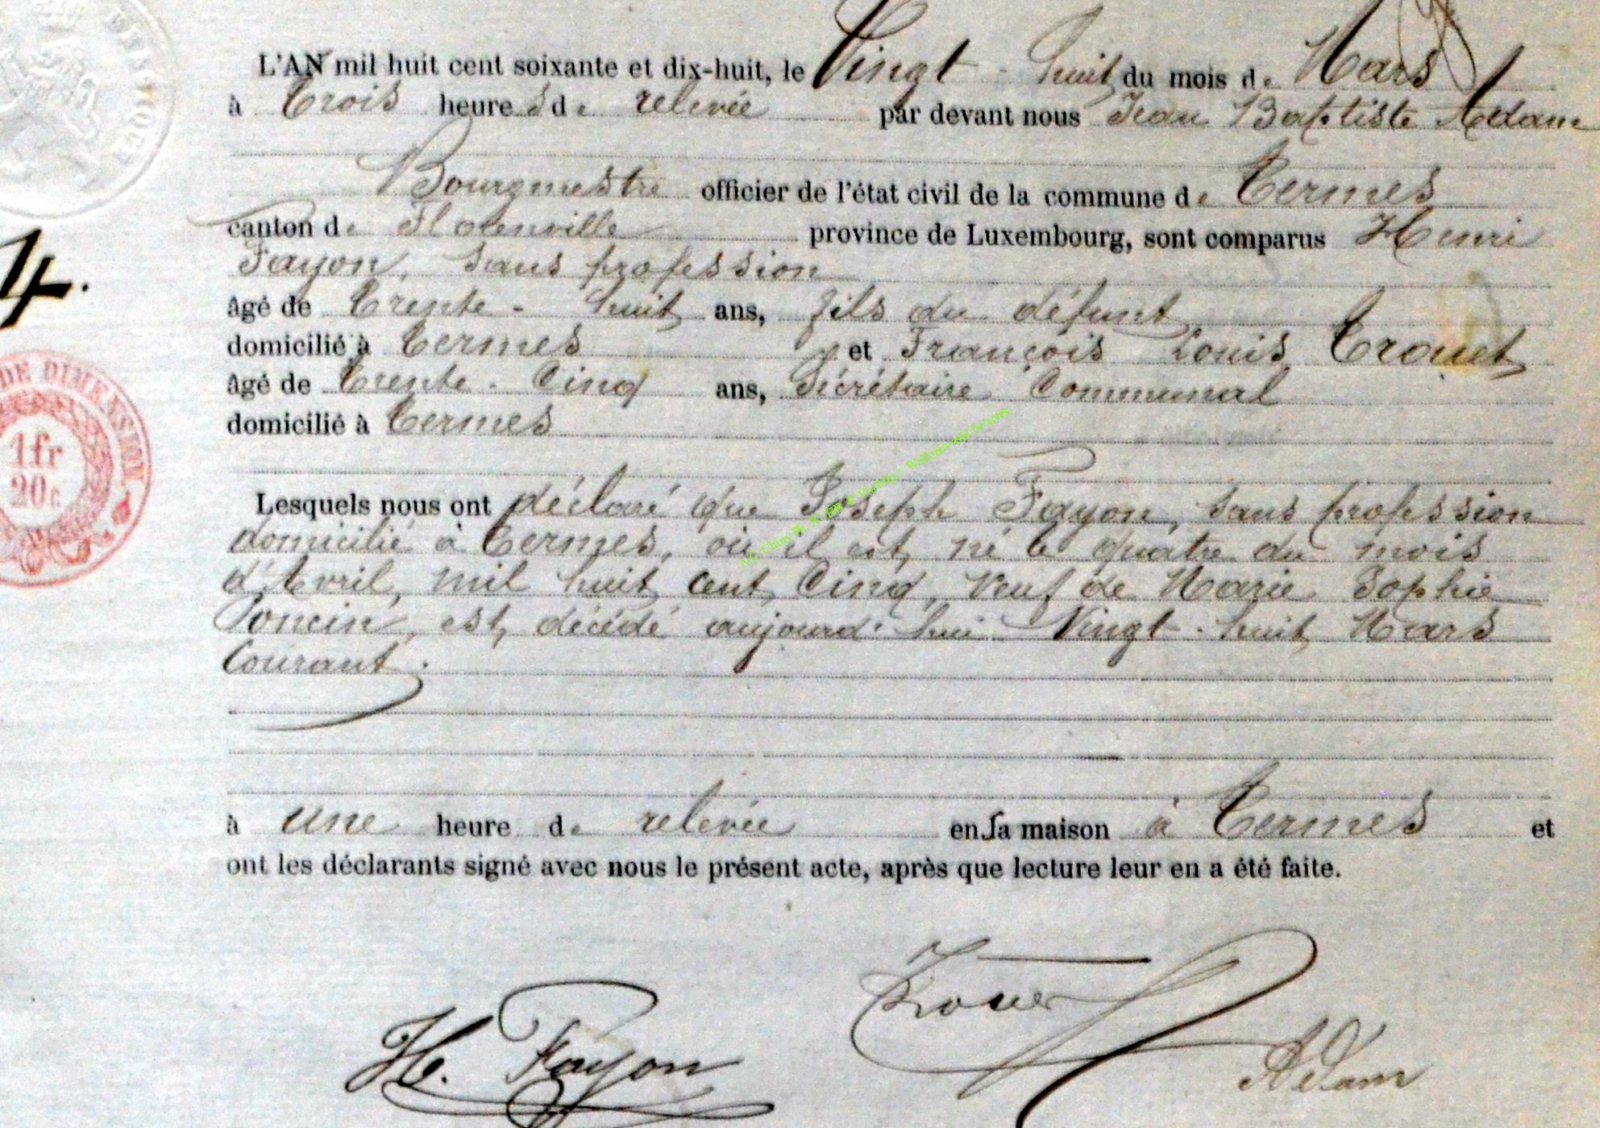 L'AN mil huit cent soixante et dix-huit, le Vingt-huit du mois de Mars
à Trois heures de relevée par devant nous Jean Baptiste Adam
Bourgmestre officier de l'état civil de la commune de Termes
canton de Florenville province de Luxembourg, sont comparus Henri
Fayon, sans profession
âgé de Trente-huit ans, fils du défunt
domicilié à Termes et François Louis Trouet
âgé de Trente-Cinq ans, Sécrétaire Communal
domicilié à Termes
Lesquels nous ont déclaré que Joseph Fayon, sans profession
domicilié à Termes, où il est né le quatre du mois
d'Avril, mil huit cent Cinq, Veuf de Marie Sophie
Poncin, est décédé aujourd'hui Vingt-huit Mars
Courant.
à une heure de relevée en sa maison à Termes et
ont les déclarants signé avec nous le présent acte, après que lecture leur en a été faite.
H. Fayon
Adam
4.
DE DIMENSION
1 fr
20 c